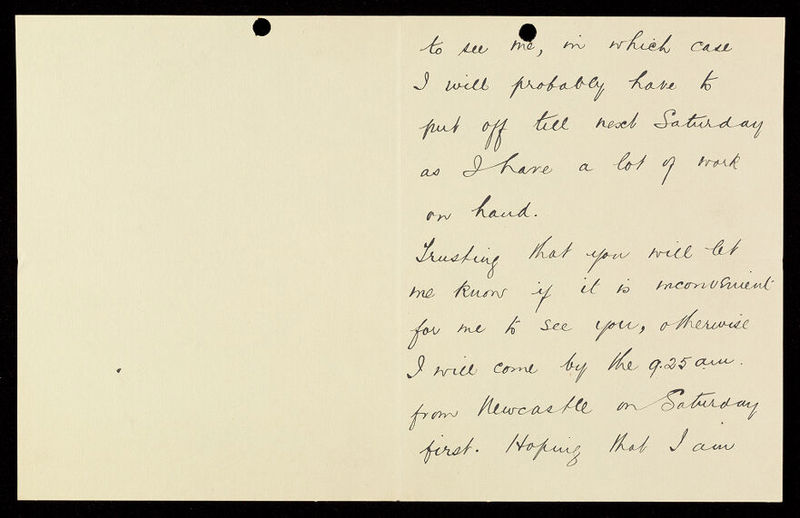 to see me, in which case
I will probably have to
put off till next Saturday
as I have a lot of work
on hand.
Trusting that you will let
me know if it is inconvenient
for me to see you, otherwise
I will come by the 9.25 am.
from Newcastle on Saturday
first. Hoping that I am